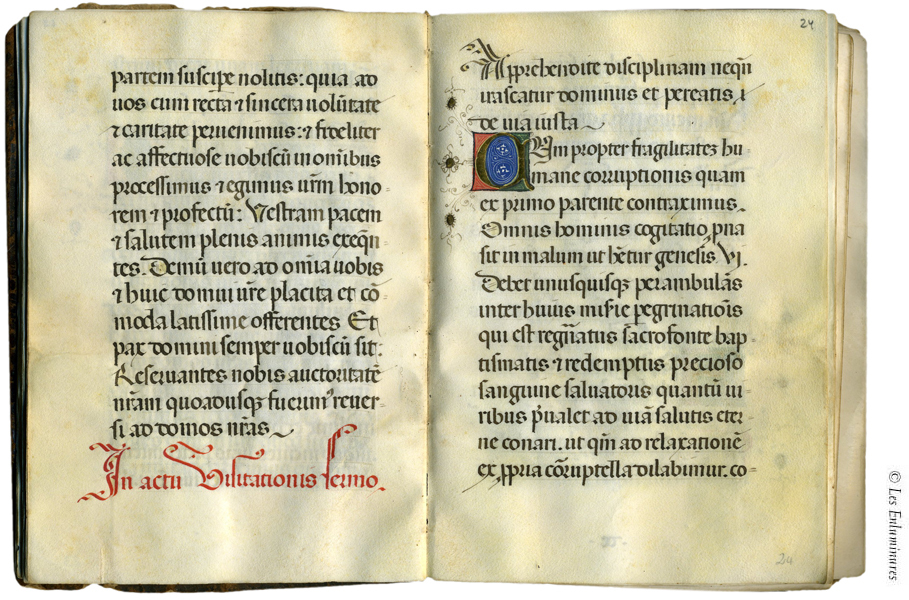 partem suscipe nolitis: quia ad
uos cum recta ⁊ sincera uolūtate
⁊ caritate peruenimus: ⁊ fideliter
ac affectuose uobiscū in om̄ibus
processimus ⁊ egimus ur̄m hono-
rem ⁊ profectū: Vestram pacem
⁊ salutem plenis animis exeqn̄-
tes. Demū uero ad om̄ia uobis
⁊ huic domui ur̄e placita et cō-
moda latissime offerentes Et
pax domini semper uobiscū sit:
Reseruantes nobis auctoritatē
nr̄am quousqꝫ reuer-
si ad domos nr̄as
In actu Visitationis sermo.
24
Apprehendite disciplinam neqn̄
irascatur dominus et pereatis
de uia iusta
Cum propter fragilitateꝫ hu-
mane corruptionis quam
ex primo parente contraximus.
Omnis hominis cogitatio pna
sit in malum ut hētur genesis VI.
Debet unusquisqꝫ perambulās
inter huius misīe pegrinatiōis
qui est regn̄atus sacro fonte bap-
tismatis ⁊ redemptus precioso
sanguine saluatoris quantū ui-
ribus p̄ualet ad uiā salutis eter-
ne conari. ut qm̄ ad relaxationē
ex ꝓpria cōruptella dilabimur. co-
24
© Les Enluminures